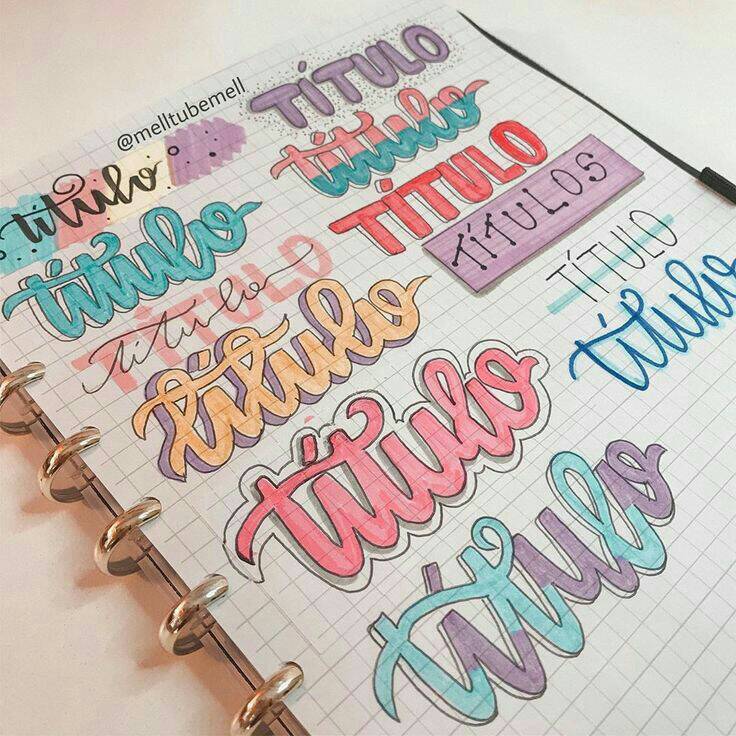 TÍTULO
@melltubemell
título
título
TÍTULO
TÍTULOS
título
TÍTULO
título
TÍTULO
título
título
título
título